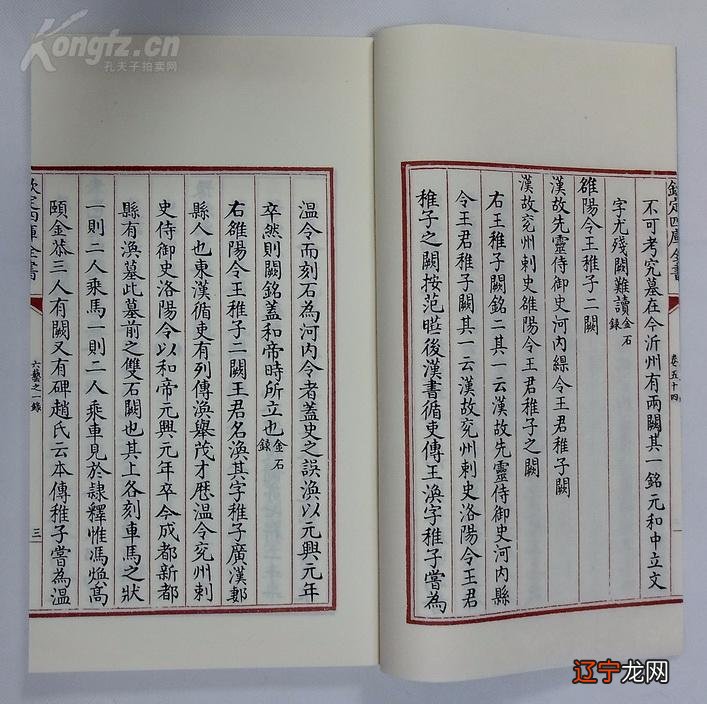 Kongfz.cn
孔夫子拍卖网
欽定四庫全書
卷五十四
不可考究墓在今沂州有兩闕其一銘元和中立文
字尤殘闕難讀金石錄
雒陽令王稚子二闕
漢故先靈侍御史河內緜令王君稚子闕
漢故兖州刺史雒陽令王君稚子之闕
右王稚子闕銘二其一云漢故先靈侍御史河内縣
令王君稚子闕其一云漢故兖州刺史洛陽令王君
稚子之闕按范曄後漢書循吏傳王渙字稚子嘗為
溫令而刻石為河内令者蓋史之誤渙以元興元年
卒然則闕銘蓋和帝時所立也金石錄
右雒陽令王稚子二闕王君名渙其字稚子廣漢郪
縣人也東漢循吏有列傳渙舉茂才歴溫令兖州刺
史侍御史洛陽令以和帝元興元年卒今成都新都
縣有渙墓此墓前之雙石闕也其上各刻車馬之狀
一則二人乘馬一則二人乘車見於隷釋惟馮煥髙
頤金恭三人有闕又有碑趙氏云本傳稚子嘗為溫
欽定四庫全書
六藝之一錄
三
辽宁龙网